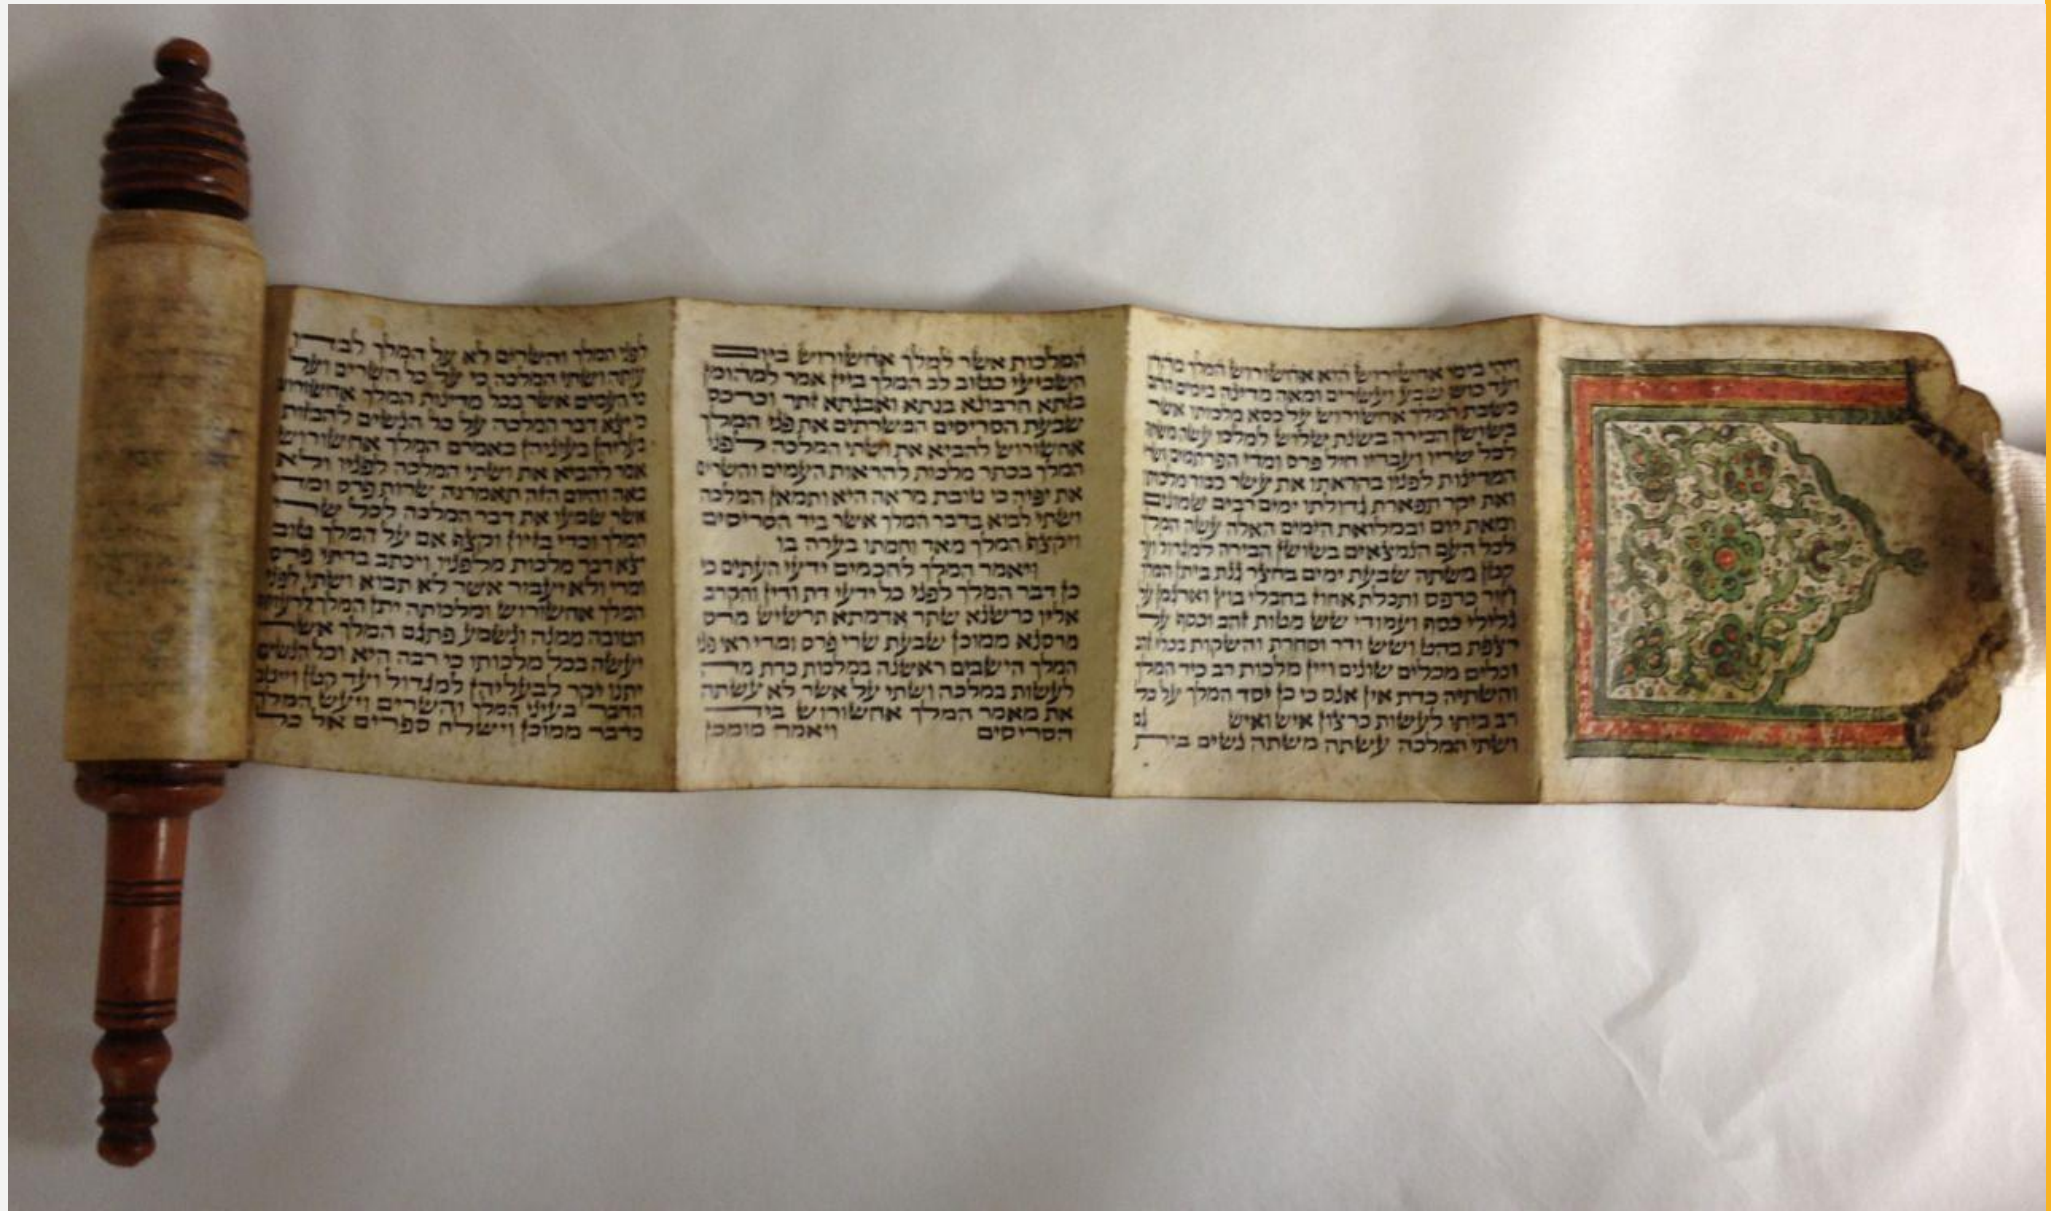 ויהי בימי אחשורוש הוא אחשורוש המלך מהדו
ועד כוש שבע ועשרים ומאה מדינה בימים ההם
כשבת המלך אחשורוש על כסא מלכותו אשר
בשושן הבירה בשנת שלוש למלכו עשה משתה
לכל שריו ועבדיו חיל פרס ומדי הפרתמים ושרי
המדינות לפניו בהראתו את עשר כבוד מלכותו
ואת יקר תפארת גדולתו ימים רבים שמונים
ומאת יום ובמלואת הימים האלה עשה המלך
לכל העם הנמצאים בשושן הבירה למגדול ועד
קטן משתה שבעת ימים בחצר גנת ביתן המלך
חור כרפס ותכלת אחוז בחבלי בוץ וארגמן על
גלילי כסף ועמודי שש מטות זהב וכסף על
רצפת בהט ושש ודר וסחרת והשקות בכלי זהב
וכלים מכלים שונים ויין מלכות רב כיד המלך
והשתיה כדת אין אנס כי כן יסד המלך על כל
רב ביתו לעשות כרצון איש ואיש גם
ושתי המלכה עשתה משתה נשים בית
המלכות אשר למלך אחשורוש ביום
השביעי כטוב לב המלך ביין אמר למהומן
בזתא חרבונא בגתא ואבגתא זתר וכרכס
שבעת הסריסים המשרתים את פני המלך
אחשורוש להביא את ושתי המלכה לפני
המלך בכתר מלכות להראות העמים והשרים
את יפיה כי טובת מראה היא ותמאן המלכה
ושתי לבוא בדבר המלך אשר ביד הסריסים
ויקצף המלך מאד וחמתו בערה בו
ויאמר המלך לחכמים ידעי העתים כי
כן דבר המלך לפני כל ידעי דת ודין והקרב
אליו כרשנא שתר אדמתא תרשיש מרס
מרסנא ממוכן שבעת שרי פרס ומדי ראי פני
המלך הישבים ראשנה במלכות כדת מה
לעשות במלכה ושתי על אשר לא עשתה
את מאמר המלך אחשורוש ביד
הסריסים ויאמר מומכן
לפני המלך והשרים לא על המלך לבדו
עותה ושתי המלכה כי על כל השרים ועל
כל העמים אשר בכל מדינות המלך אחשורוש
כי יצא דבר המלכה על כל הנשים להבזות
בעליהן בעיניהן באמרם המלך אחשורוש
אמר להביא את ושתי המלכה לפניו ולא
באה והיום הזה תאמרנה שרות פרס ומדי
אשר שמעו את דבר המלכה לכל שרי
המלך וכדי בזיון וקצף אם על המלך טוב
יצא דבר מלכות מלפניו ויכתב בדתי פרס
ומדי ולא יעבור אשר לא תבוא ושתי לפני
המלך אחשורוש ומלכותה יתן המלך לרעותה
הטובה ממנה ונשמע פתגם המלך אשר
יעשה בכל מלכותו כי רבה היא וכל הנשים
יתנו יקר לבעליהן למגדול ועד קטן וייטב
הדבר בעיני המלך והשרים ויעש המלך
כדבר ממוכן וישלח ספרים אל כל